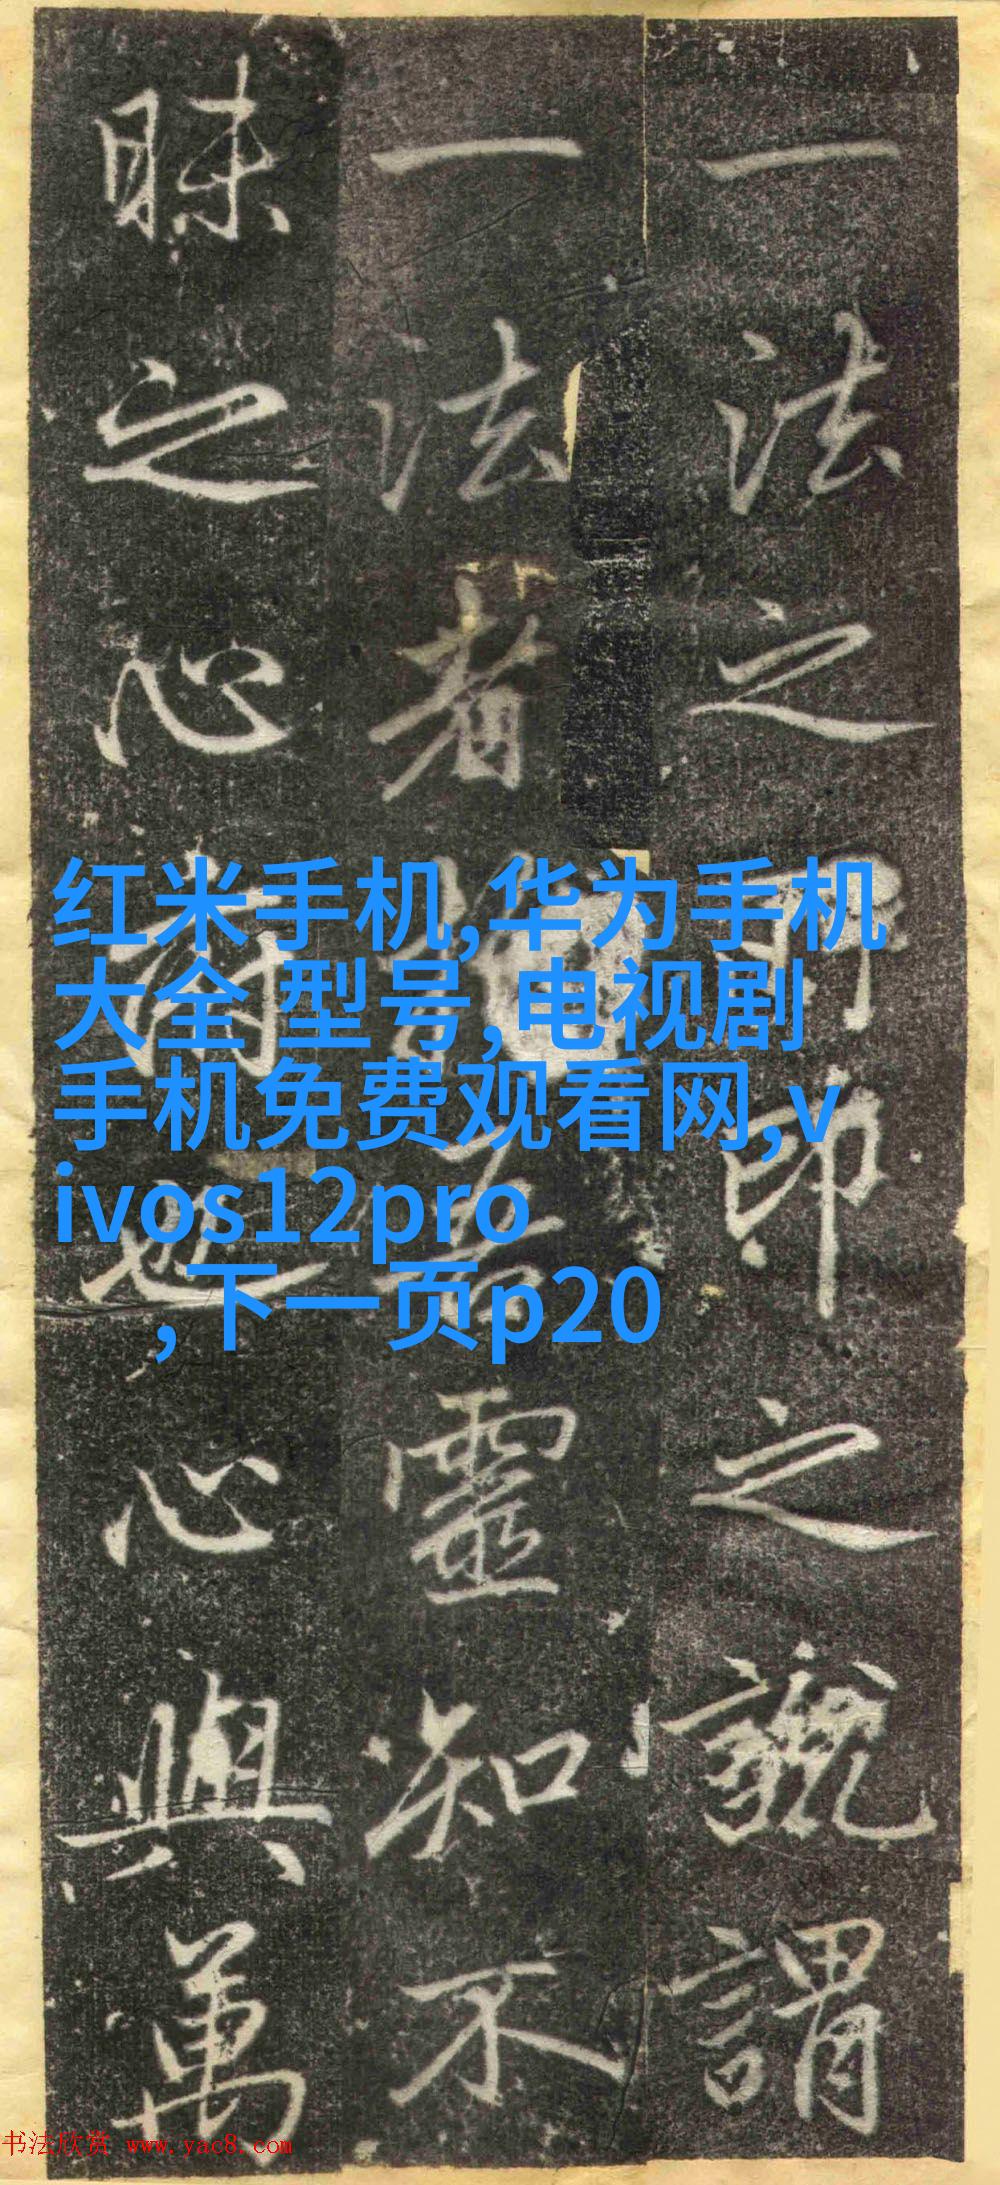 一法之即之號謂
一法者靈知不
昧之心也心與萬
红米手机,华为手机
大全 型号,电视剧
手机免费观看网,v
ivos12pro
,下一页p20
书法欣赏 www.yac8.com